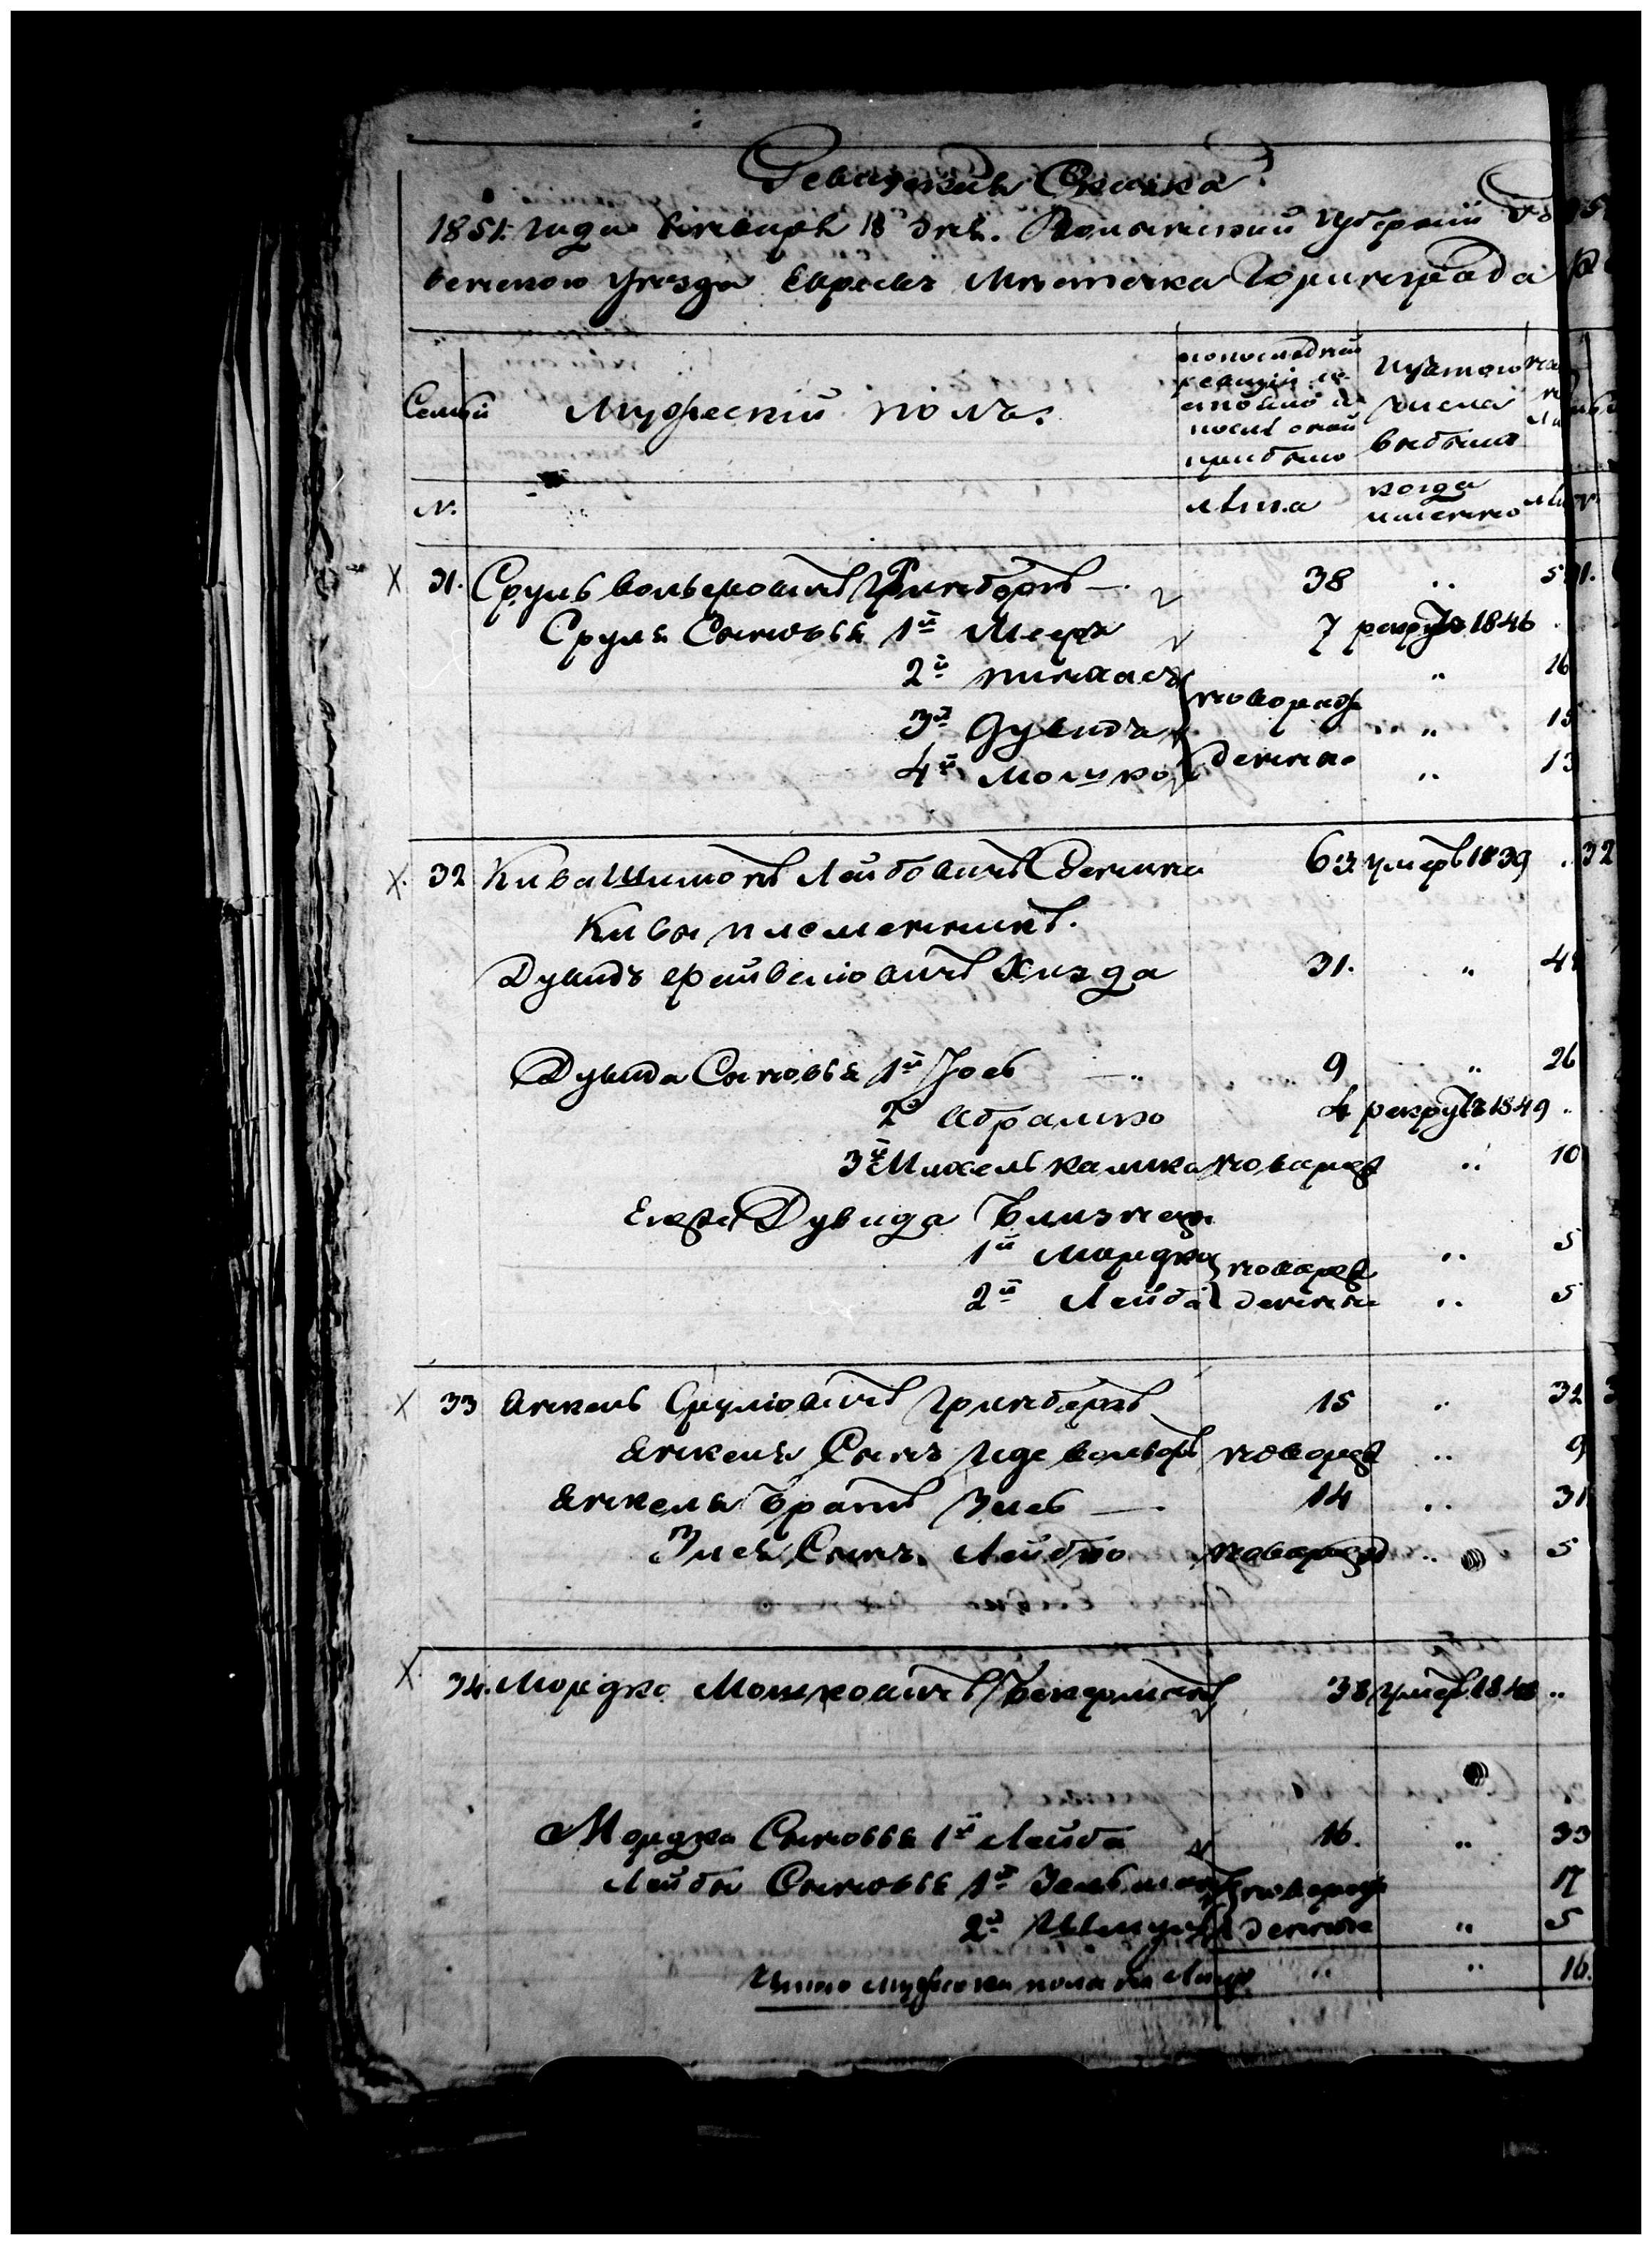 Ревизская Сказка
1851. года Генваря 18 дня. Волынской Губернии Ро
венского уезда Евреевъ Местечка Горинграда
Семьи Мужескій полъ.
по последней ревизіи состояло и после оной прибыло
Изъ того числа выбыло
N. лета когда именно
31. Сруль Вольфовичъ Гринбергъ 38 „
Сруля Сыновья 1й Мееръ 7 рекрутъ 1846
2й Пинхасъ новорож „ 16
3й Дувидъ „ 15
4й Мошко денные „ 13
32 Кива Шимонъ Лейбовичъ 63 умеръ 1839 „ 32
Кивы племенникъ.
Дувидъ Файвелювичъ 31. „
Дувида Сыновья 1й Іось 9 „ 26
2й Абрамко 4 рекрутъ 1849 „
3й новорож „ 10
Его же Дувида Близнецы
1й Мордко новорож „ 5
2й Лейба денные „ 5
33 Янкель Срулювичъ Гринбергъ 15 „ 32
Янкеля Сынъ Иде Вольфъ новорож „ 9
Янкеля братъ Зись 14 „ 31
Зися Сынъ Лейбко новорожд „ 5
34. Мордко Мошковичъ 38 умеръ 184 „
Мордка Сыновья 1й Лейба 16. „ 33
Лейбы Сыновья 1й новорож 17
2й денные „ 5
Итого мужеска пола на лицо „ „ 16.